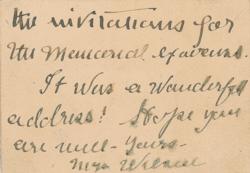 the invitations for
the Memorial exercises.
It was a wonderful
address! Hope you
are well - Yours -
Mrs